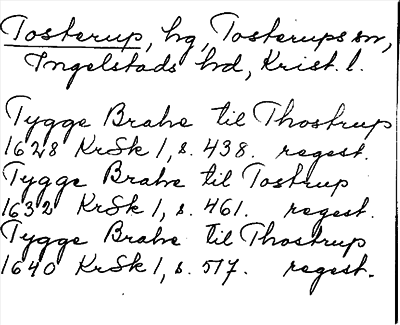 Tosterup, hg, Tosterups sn,
Ingelstads hd, Krist. l.
Tygge Brahe til Thostrup
1628 KrSk 1, s. 438. regest.
Tygge Brahe til Tostrup
1632 KrSk 1, s. 461. regest.
Tygge Brahe til Thostrup
1640 KrSk 1, s. 517. regest.